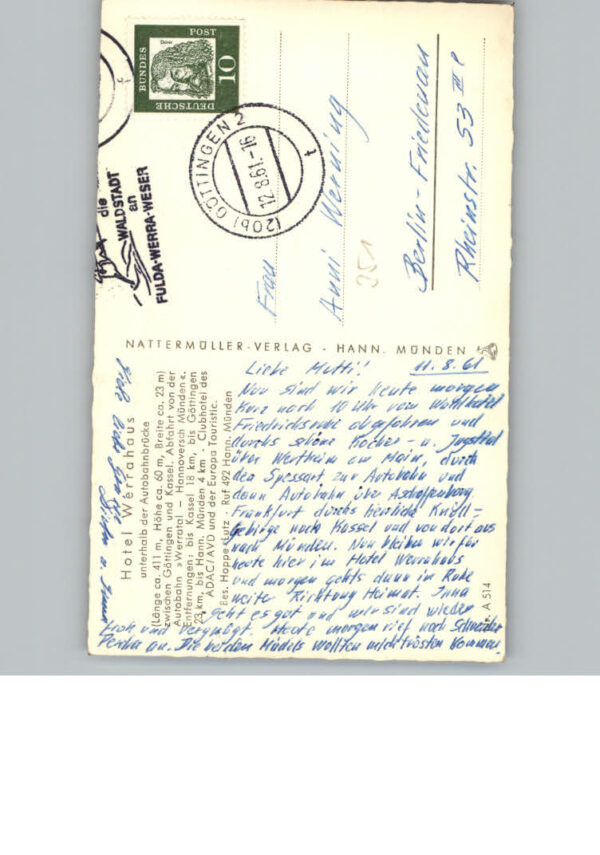 DEUTSCHE
BUNDES
POST
Dürer
10
(20b) GÖTTINGEN 2
12.8.61.-16
t
die
WALDSTADT
an
FULDA-WERRA-WESER
Frau
Anni Werning
Berlin-Friedenau
Rheinstr. 53 III
251
NATTERMÜLLER-VERLAG - HANN. MÜNDEN
Hotel Werrahaus
unterhalb der Autobahnbrücke
(Länge ca. 411 m, Höhe ca. 60 m, Breite ca. 23 m)
zwischen Göttingen und Kassel. Abfahrt von der
Autobahn »Werratal – Hannoversch Münden«.
Entfernungen: bis Kassel 18 km, bis Göttingen
23 km, bis Hann. Münden 4 km · Clubhotel des
ADAC/AVD und der Europa Touristic.
Bes. Hoppe-Lutz · Ruf 492 Hann. Münden
A 514
Liebe Mutti! 11.8.61
Nun sind wir heute morgen
kurz nach 10 Uhr vom Waldhotel
Friedrichsruhe abgefahren und
durchs schöne Kocher- u. Jagsttal
über Wertheim am Main, durch
den Spessart zur Autobahn und
dann Autobahn über Aschaffenburg,
Frankfurt durchs herrliche Knüll=
gebirge nach Kassel und von dort aus
nach Münden. Nun bleiben wir für
heute hier im Hotel Werrahaus
und morgen gehts dann in Ruhe
weiter Richtung Heimat.
geht es gut und wir sind wieder
froh und vergnügt. Heute morgen rief noch Schneider
an. Die beiden Mädels wollten kommen.